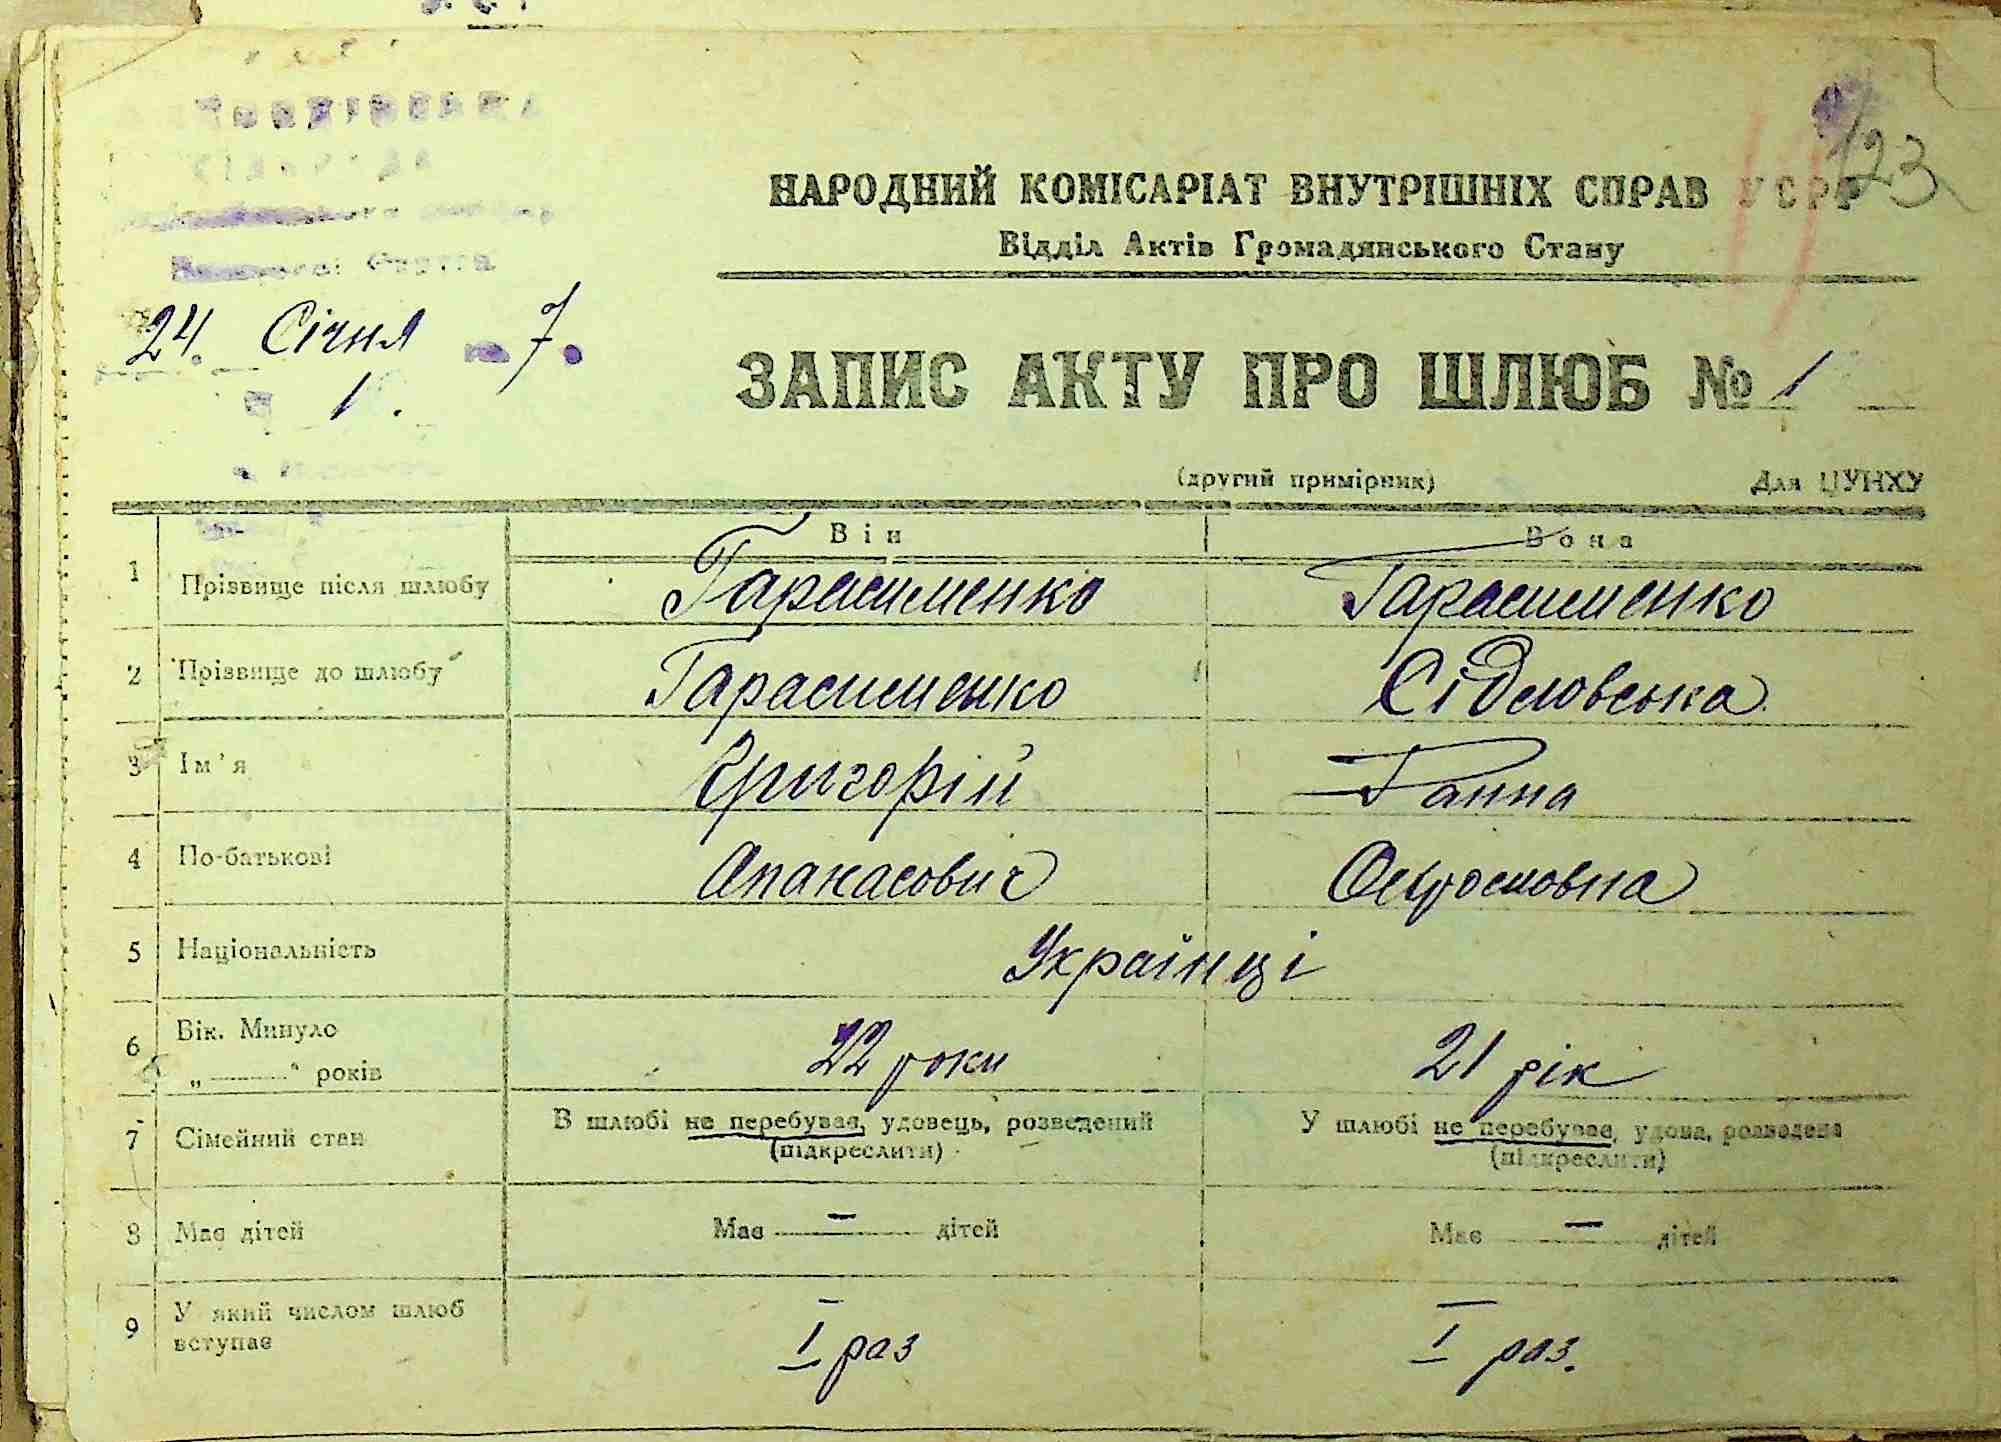 123
НАРОДНИЙ КОМІСАРІАТ ВНУТРІШНІХ СПРАВ УСРР
Відділ Актів Громадянського Стану
24. Січня 7.
1.
ЗАПИС АКТУ ПРО ШЛЮБ № 1
(другий примірник) Для ЦУНХУ
Він Вона
1 Прізвище після шлюбу Гарасименко Гарасименко
2 Прізвище до шлюбу Гарасименко
3 Ім'я Григорій Ганна
4 По-батькові Апанасович
5 Національність Українці
6 Вік. Минуло 22 роки 21 рік
„ “ років
7 Сімейний стан В шлюбі не перебував, удовець, розведений У шлюбі не перебуває, удова, розведена
(підкреслити) (підкреслити)
8 Має дітей Має — дітей Має — дітей
9 У який числом шлюб вступає I раз I раз.